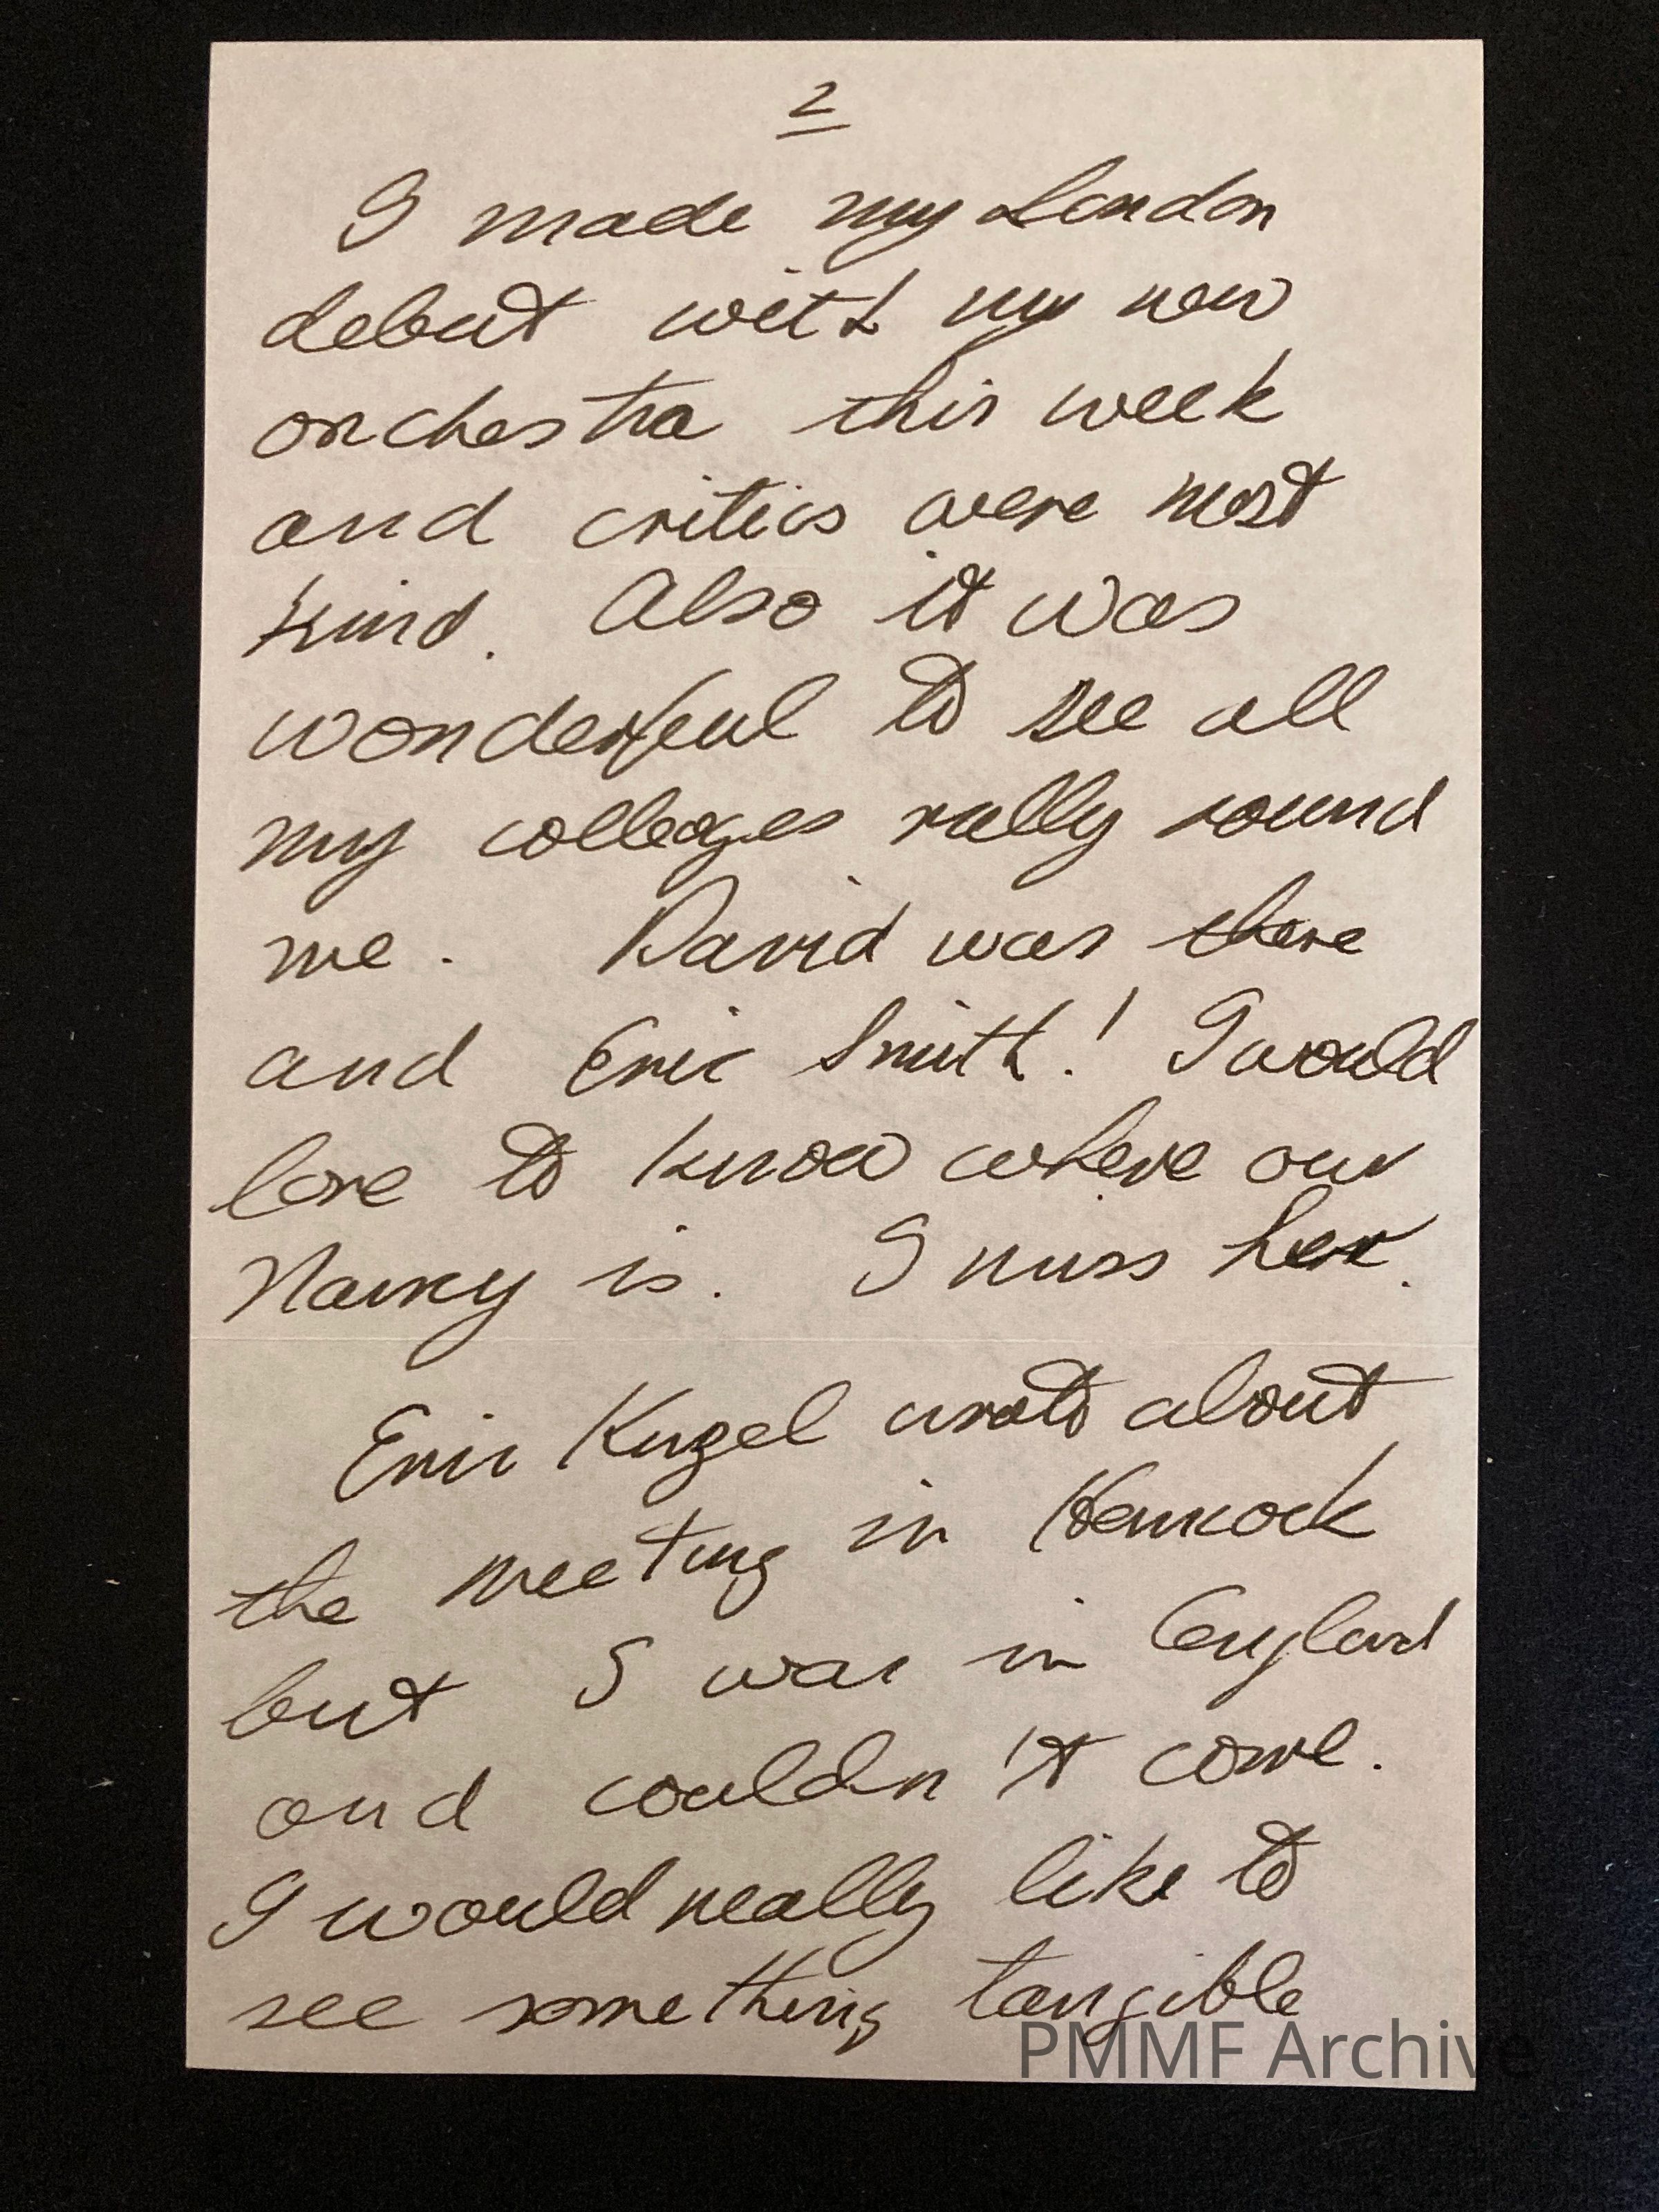 2
I made my London
debut with my new
orchestra this week
and critics were most
kind. Also it was
wonderful to see all
my colleages rally round
me. David was there
and Eric Smith! I would
love to know where our
Nancy is. I miss her.
Eric Kuzel wrote about
the meeting in Hancock
but I was in England
and couldn't come.
I would really like to
see something tangible
PMMF Archive